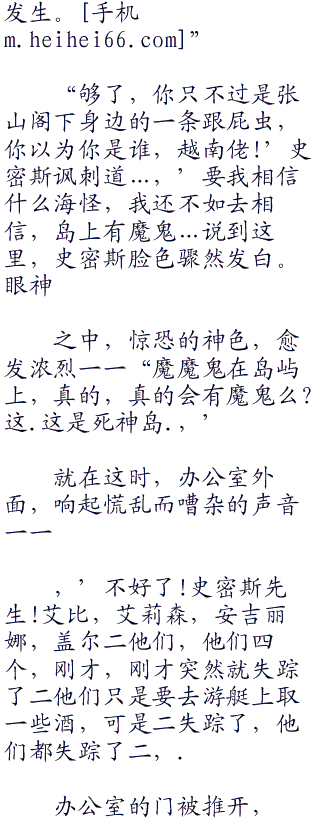 发生。[手机
m.heihei66.com]”
“够了，你只不过是张
山阁下身边的一条跟屁虫，
你以为你是谁，越南佬!’史
密斯讽刺道...，’要我相信
什么海怪，我还不如去相
信，岛上有魔鬼...说到这
里，史密斯脸色骤然发白。
眼神
之中，惊恐的神色，愈
发浓烈一一“魔魔鬼在岛屿
上，真的，真的会有魔鬼么?
这.这是死神岛.，’
就在这时，办公室外
面，响起慌乱而嘈杂的声音
一一
，’不好了!史密斯先
生!艾比，艾莉森，安吉丽
娜，盖尔二他们，他们四
个，刚才，刚才突然就失踪
了二他们只是要去游艇上取
一些酒，可是二失踪了，他
们都失踪了二，.
办公室的门被推开，